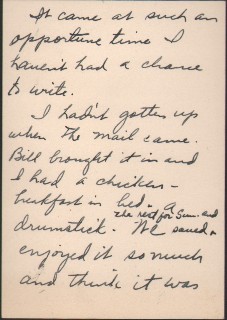 It came at such an
opportune time I
haven't had a chance
to write.
I hadn't gotten up
when the mail came.
Bill brought it in and
I had a chicken-
brekfast in bed. A
the rest for Sun. and
drumstick. We saved
enjoyed it so much
and think it was